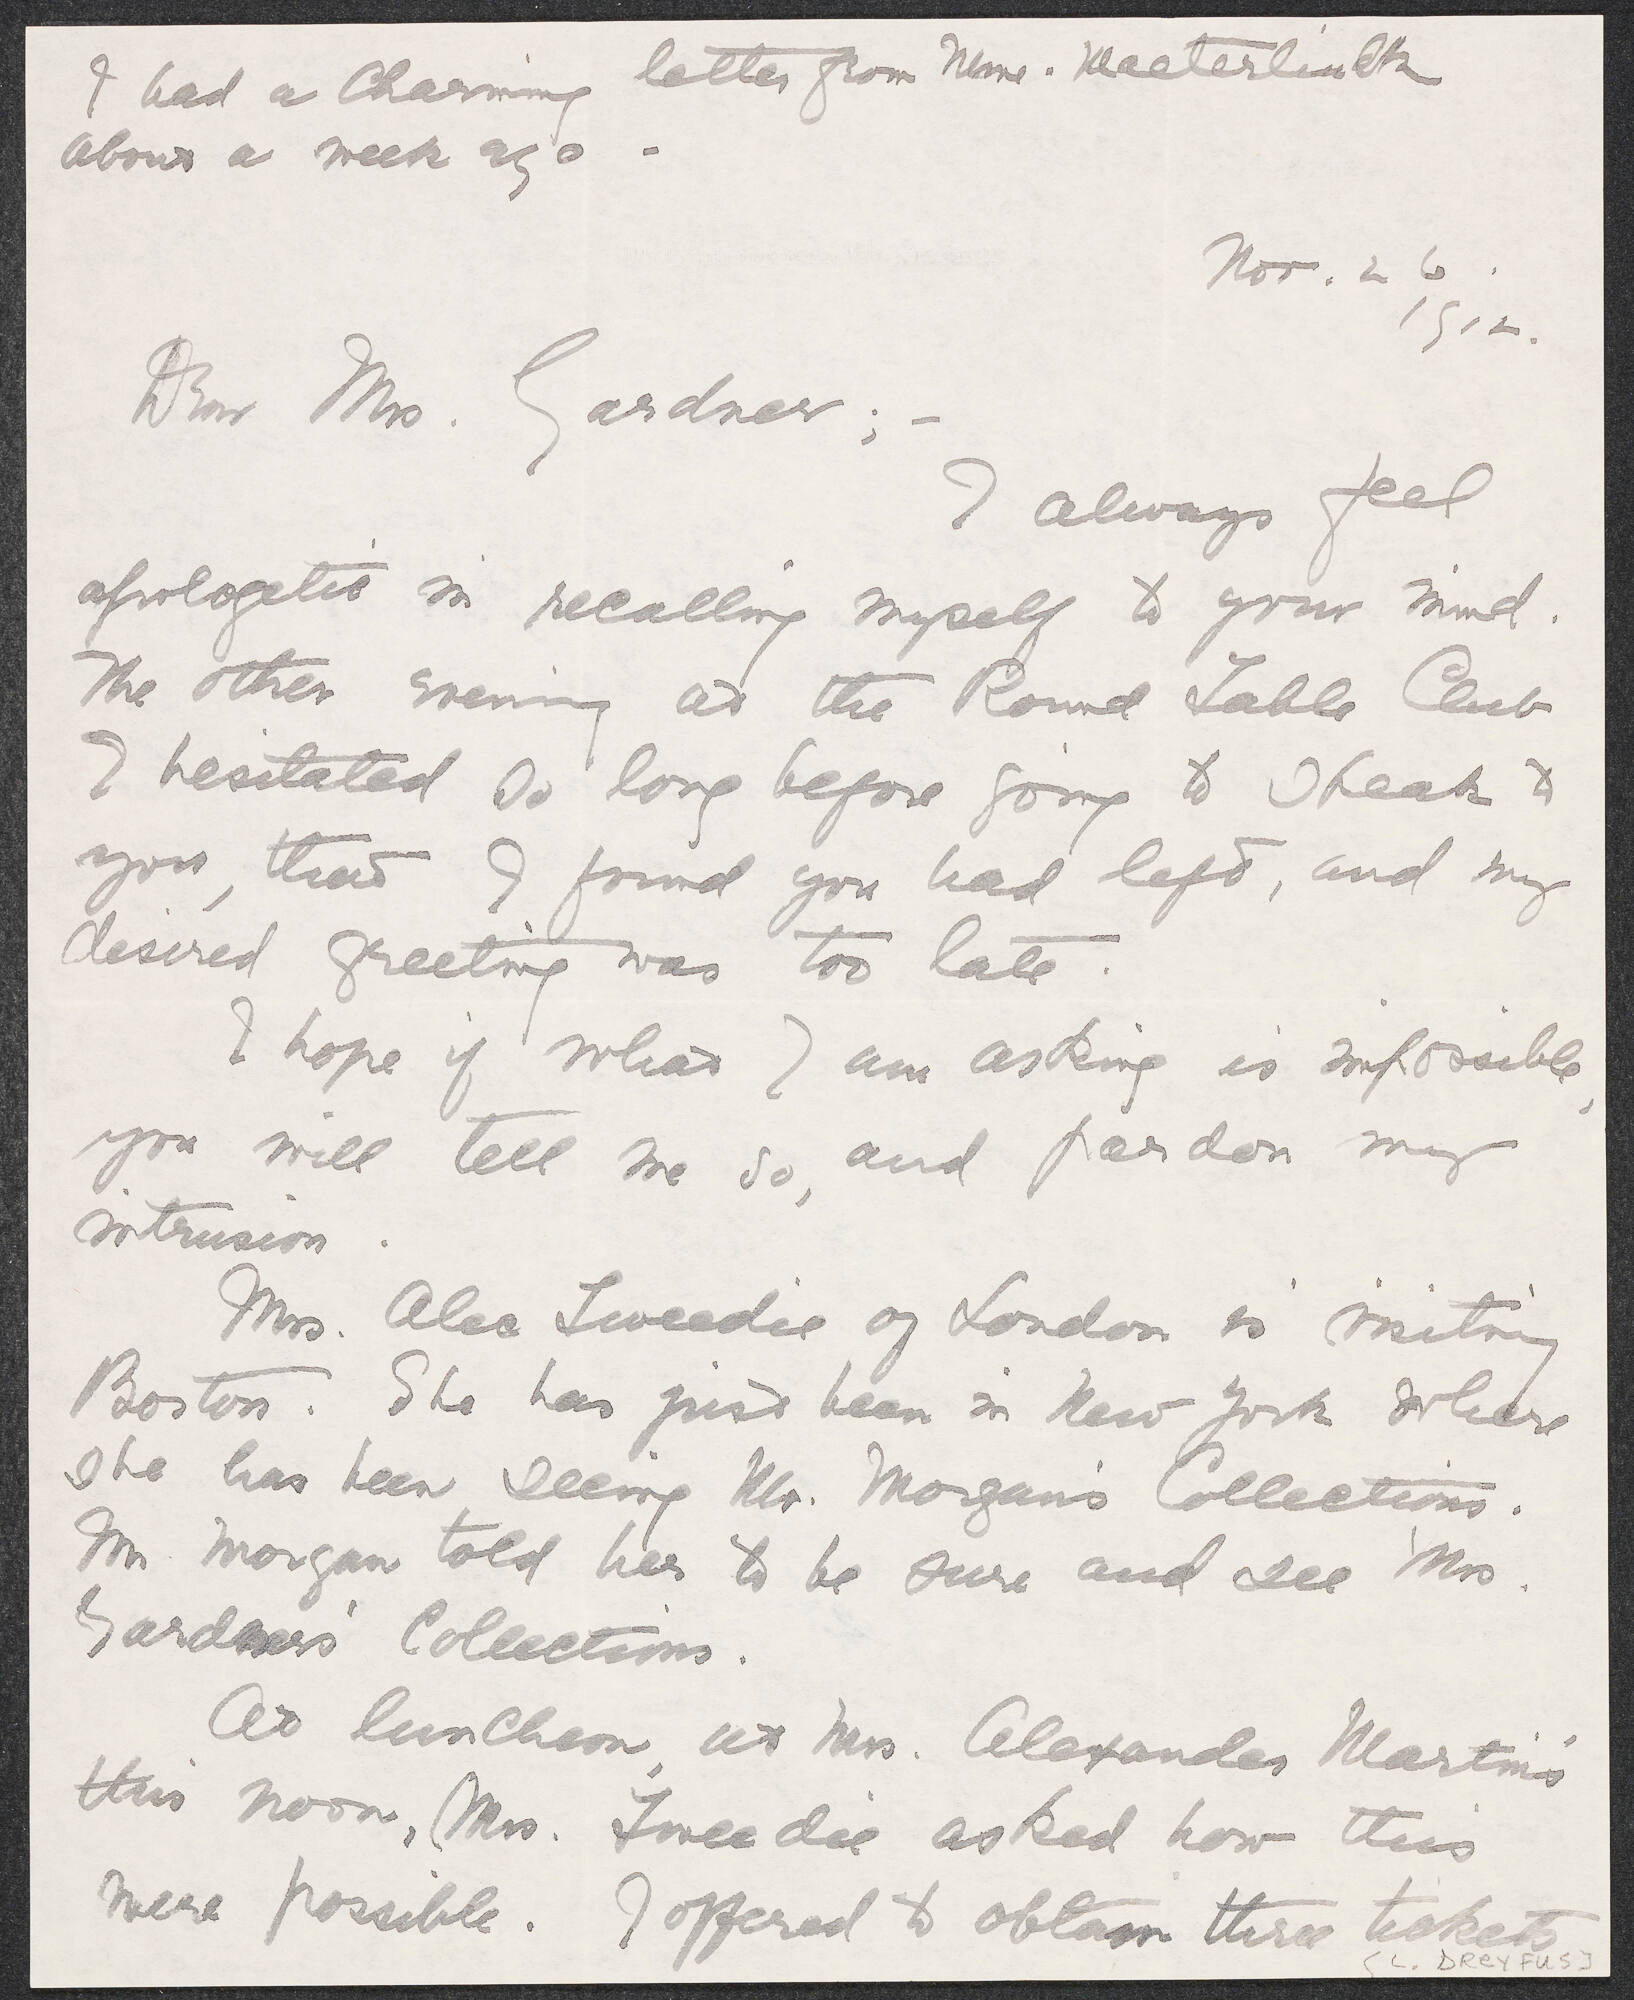 I had a Charming letter from Mme. Maeterlinck
about a week ago -
Nov. 26.
1912.
Dear Mrs. Gardner; -
I always feel
apologetic in recalling myself to your mind.
The other evening at the Round Table Club
I hesitated so long before going to speak to
you, that I found you had left, and my
desired greeting was too late.
I hope if what I am asking is impossible,
you will tell me so, and pardon my
intrusion.
Mrs. Alec Tweedie of London is visiting
Boston. She has just been in New York where
she has been seeing Mr. Morgan's Collections.
Mr. Morgan told her to be sure and see Mrs.
Gardner's Collections.
At luncheon, at Mrs. Alexander Martin's
this noon, Mrs. Tweedie asked how this
were possible. I offered to obtain three tickets
[L. DREYFUS]